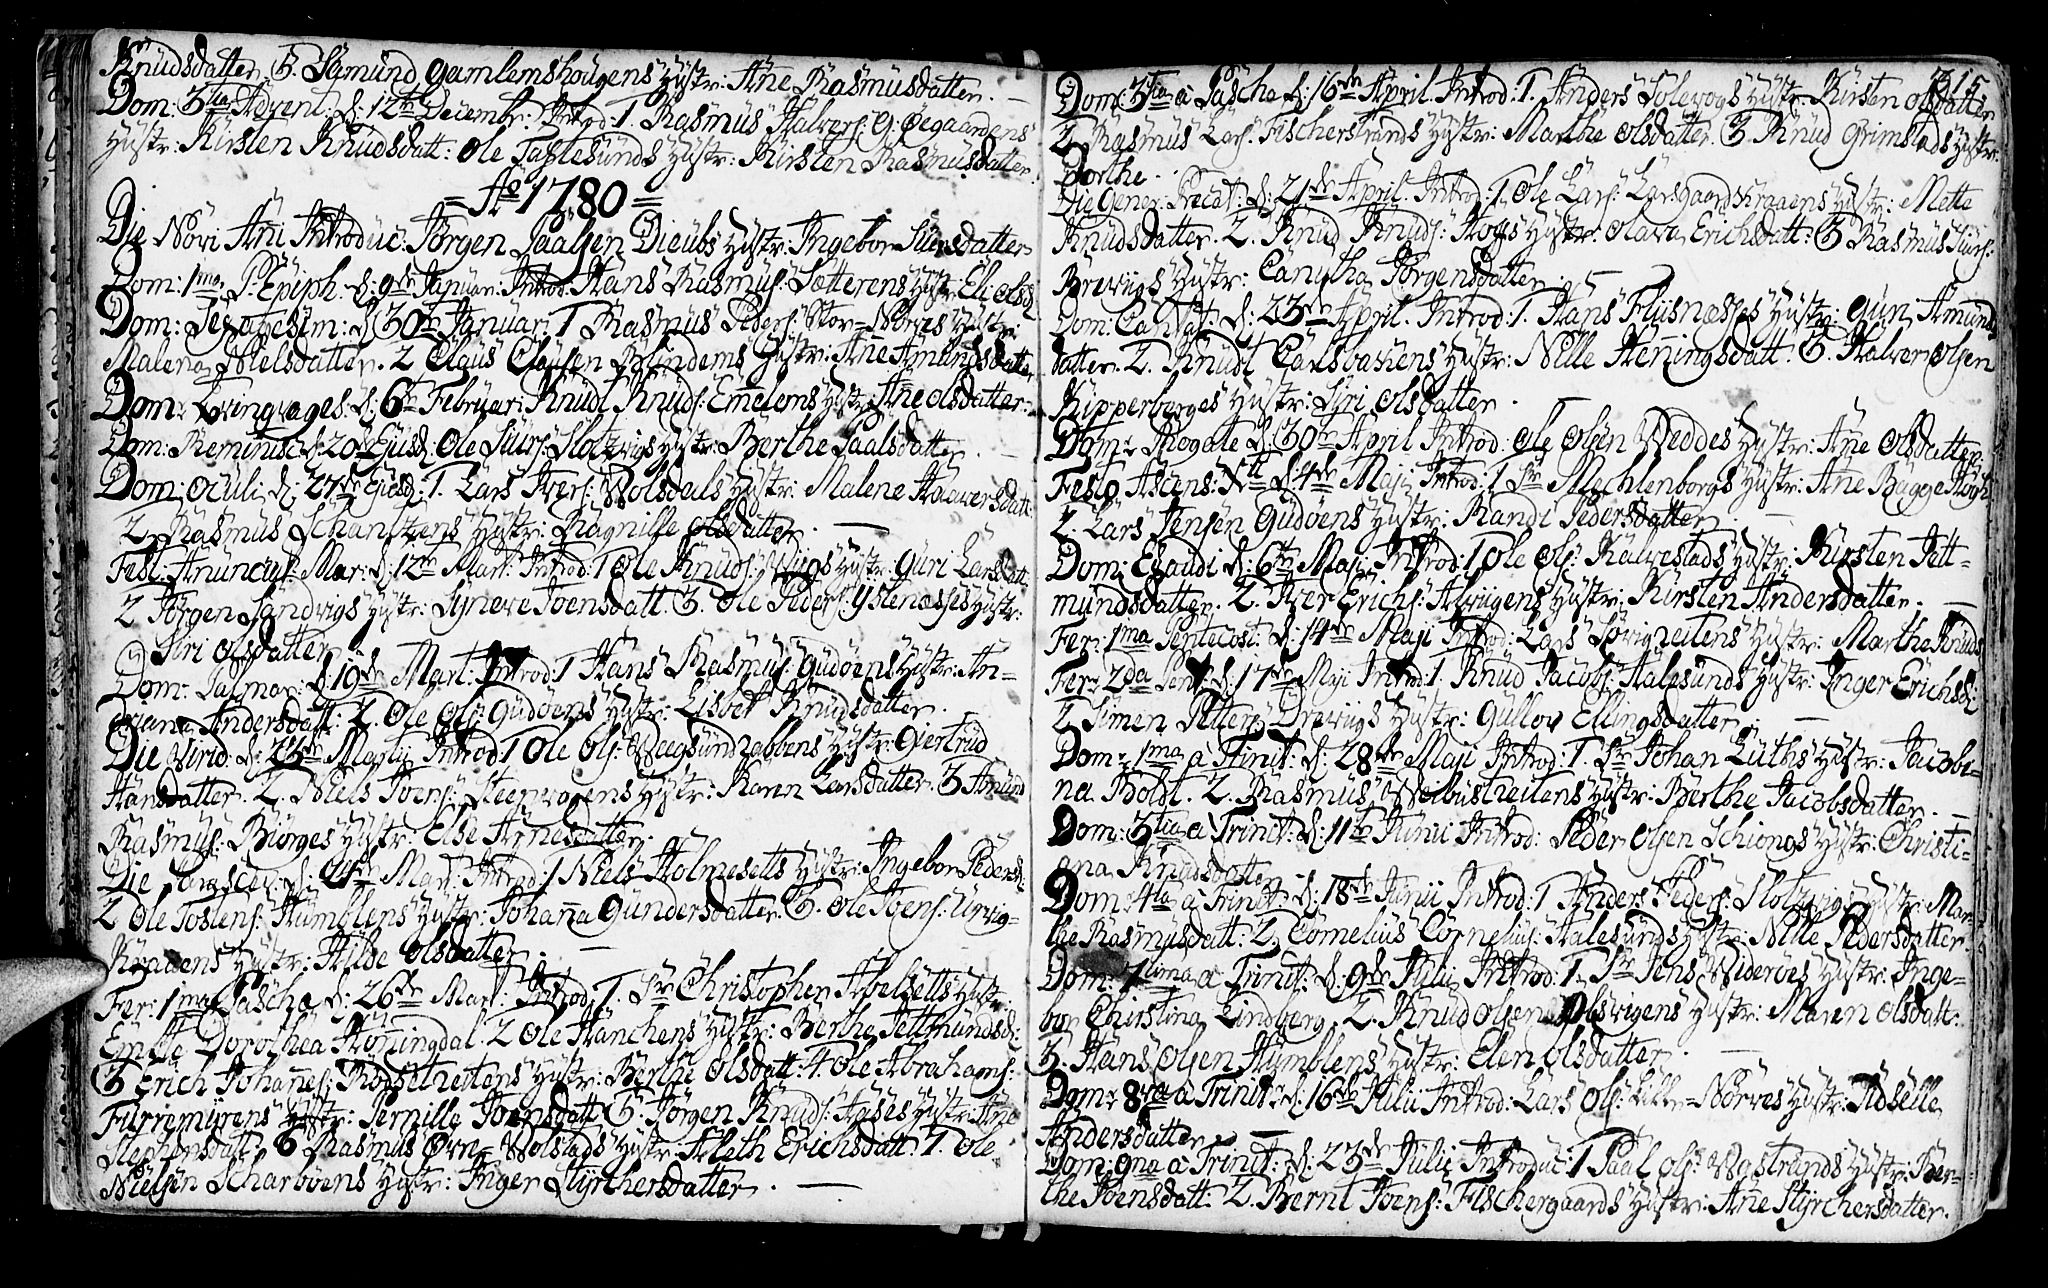 Knudsdatter. 3. Samund Gamlemshougens Hustr: Ane Rasmusdatter. —
Dom: 3tia Advent: d: 12te Decembr: Introd: 1. Rasmus Halvers: Øegaardens
Hustr: Kirsten Knudsdatt: Ole Taftesunds Hustr: Kirsten Rasmusdatter.
= Ao 1780 =
Die Novi Ani Introduc: Jørgen Paalsen Dieubs Hustr: Ingebor Siursdatter
Dom: 1ma P: Epiph. d: 9de Januar: Introd: Hans Rasmus: Sætterens Hustr: Eli Olsd:
Dom: Sexagesim: d: 30te Januar: 1 Rasmus Peders: Stor-Nørves Hustr:
Malena Nielsdatter. 2 Claus Clausen Blindems Hustr: Ane Amundsdatter
Dom: Qvinqvages: d: 6te Februar: Knud Knuds: Emelems Hustr: Ane Olsdatter.
Dom: Reminisc: d: 20de Ejusd: Ole Siurs: Slotzvigs Hustr: Berthe Paalsdatter. —
Dom: Oculi d: 27de Ejusd: 1. Lars Ivers: Wolsdals Hustr: Malene Halversdatt:
2 Rasmus Schantzens Hustr: Ragnille Olsdatter. —
Fest: Anunciat: Mar: d: 12te Mart: Introd: 1 Ole Knuds: Wiigs Hustr: Guri Larsdatt:
2 Jørgen Sandvigs Hustr: Synneve Joensdatt. 3. Ole Peders: Ystenæsses Hustr:
Siri Olsdatter.
Dom: Palmar: d: 19de Mart: Introd: 1 Hans Rasmus: Gudøens Hustr: An-
driana Andersdatt: 2. Ole Ols: Gudøens Hustr: Lisbet Knudsdatter.
Die Virid: d: 23de Martii Introd: 1 Ole Ols: Weegsundrabbens Hustr: Giertrud
Hansdatter. 2. Niels Joens: Steenvagens Hustr: Karen Larsdatter. 3 Amund
Rasmus: Biørges Hustr: Else Arnesdatter.
Die Parasce: d: Mart: Introd: 1 Niels Holmesetts Hustr: Ingebor Pedersd:
2 Ole Tostens: Humblens Hustr: Johana Gundersdatter. 3. Ole Joens: Urvig-
Kraaens Hustr: Hilde Olsdatter. —
Fer: 1ma Pascha d: 26de Mart: Introd: 1. Sr Christopher Abelsetts Hustr:
Emilte Dorothea Honingdal. 2 Ole Hanchens Hustr: Berthe Pettmundsd:
3 Erich Johanes: Rødsetreitens Hustr: Berthe Olsdatt: 4. Ole Abrahams:
Furremyrens Hustr: Pernille Joensdatt: 5. Jørgen Knuds: Hases Hustr: Ane
Stephensdatt: 6 Rasmus Ørn= Wolstads Hustr: Aleth Erichsdatt: 7. Ole
Nielsen Scharbøens Hustr: Inger Styrchersdatter. —
215
Dom: 3tia à Pascha d: 16de April. Introd: 1. Anders Solevogs Hustr: Kirsten Olsdatter
2 Rasmus Lars: Fischerstrands Hustr: Marthe Olsdatter. 3. Knud Grimstads Hustr:
Dorthe.
Die Gener: Precat: d: 21de April. Introd: 1. Ole Lars: Larsgaardskraaens Hustr: Mette
Knudsdatter. 2. Knud Knuds: Hogs Hustr: Olava Erichsdatt: 3 Rasmus Siurs:
Breviigs Hustr: Canutha Jørgensdatter. —
Dom: Cantat: d: 23de April. Introd: 1. Hans Fliisnæsses Hustr: Guri Amunds
datter. 2. Knud Carlsbachens Hustr: Nille Henningsdatt. 3. Halver Olsen
Kipperberges Hustr: Siri Olsdatter. —
Dom: Rogate d: 30te April Introd: Ole Olsen Weddes Hustr: Ane Olsdatter.
Festo Ascens: Xti d: 4de Maji Introd: 1 Sr Mechlenborgs Hustr: Ane Bugge Hogh
2. Lars Jensen Gudøens Hustr: Randi Pedersdatter.
Dom: Exaudi d: 6te Maji Introd: 1 Ole Ols: Kalvestads Hustr: Kirsten Pett-
mundsdatter. 2. Iver Erichs: Alviigens Hustr: Kirsten Andersdatter. —
Fer: 1ma Pentecost: d: 14de Maji Introd: Lars Løvigreitens Hustr: Marthe Knuds
Fer: 2da Pent: d: 17de Maji Introd: 1. Knud Jacobs: Halesunds Hustr: Inger Erichsd:
2 Simen Petters: Drewiigs Hustr: Gullov Ellingsdatter. —
Dom: 1ma à Trinit: d: 28de Maji Introd: 1. Sr Johan Luths Hustr: Jacobi-
na Holdt. 2. Rasmus Weibustreitens Hustr: Berthe Jacobsdatter. —
Dom: 3tia à Trinit: d: 11te Junii Introd: Peder Olsen Schiongs Hustr: Christi-
ana Knudsdatter. —
Dom: 4ta à Trinit: d: 18de Junii Introd: 1 Anders Peders: Slotzvigs Hustr: Mar-
the Rasmusdatt: 2. Cornelius Cornelius: Halesunds Hustr: Nille Pedersdatter
Dom: 7tima à Trinit: d: 9de Julii Introd: 1. Sr Jens Widerøes Hustr: Inge-
bor Chirstina Lindberg. 2. Knud Olsen Olsvigens Hustr: Maren Olsdatt:
3. Hans Olsen Humblens Hustr: Elen Olsdatter. —
Dom: 8va à Trinit: d: 16de Julii Introd: Lars Ols: Lille-Nørves Hustr: Sidselle
Andersdatter. —
Dom: 9na à Trinit: d: 23de Julii Introduc: 1 Paal Ols: Wastrands Hustr: Ber-
the Joensdatt: 2. Bernt Joens: Fischergaards Hustr: Ane Styrchersdatter.